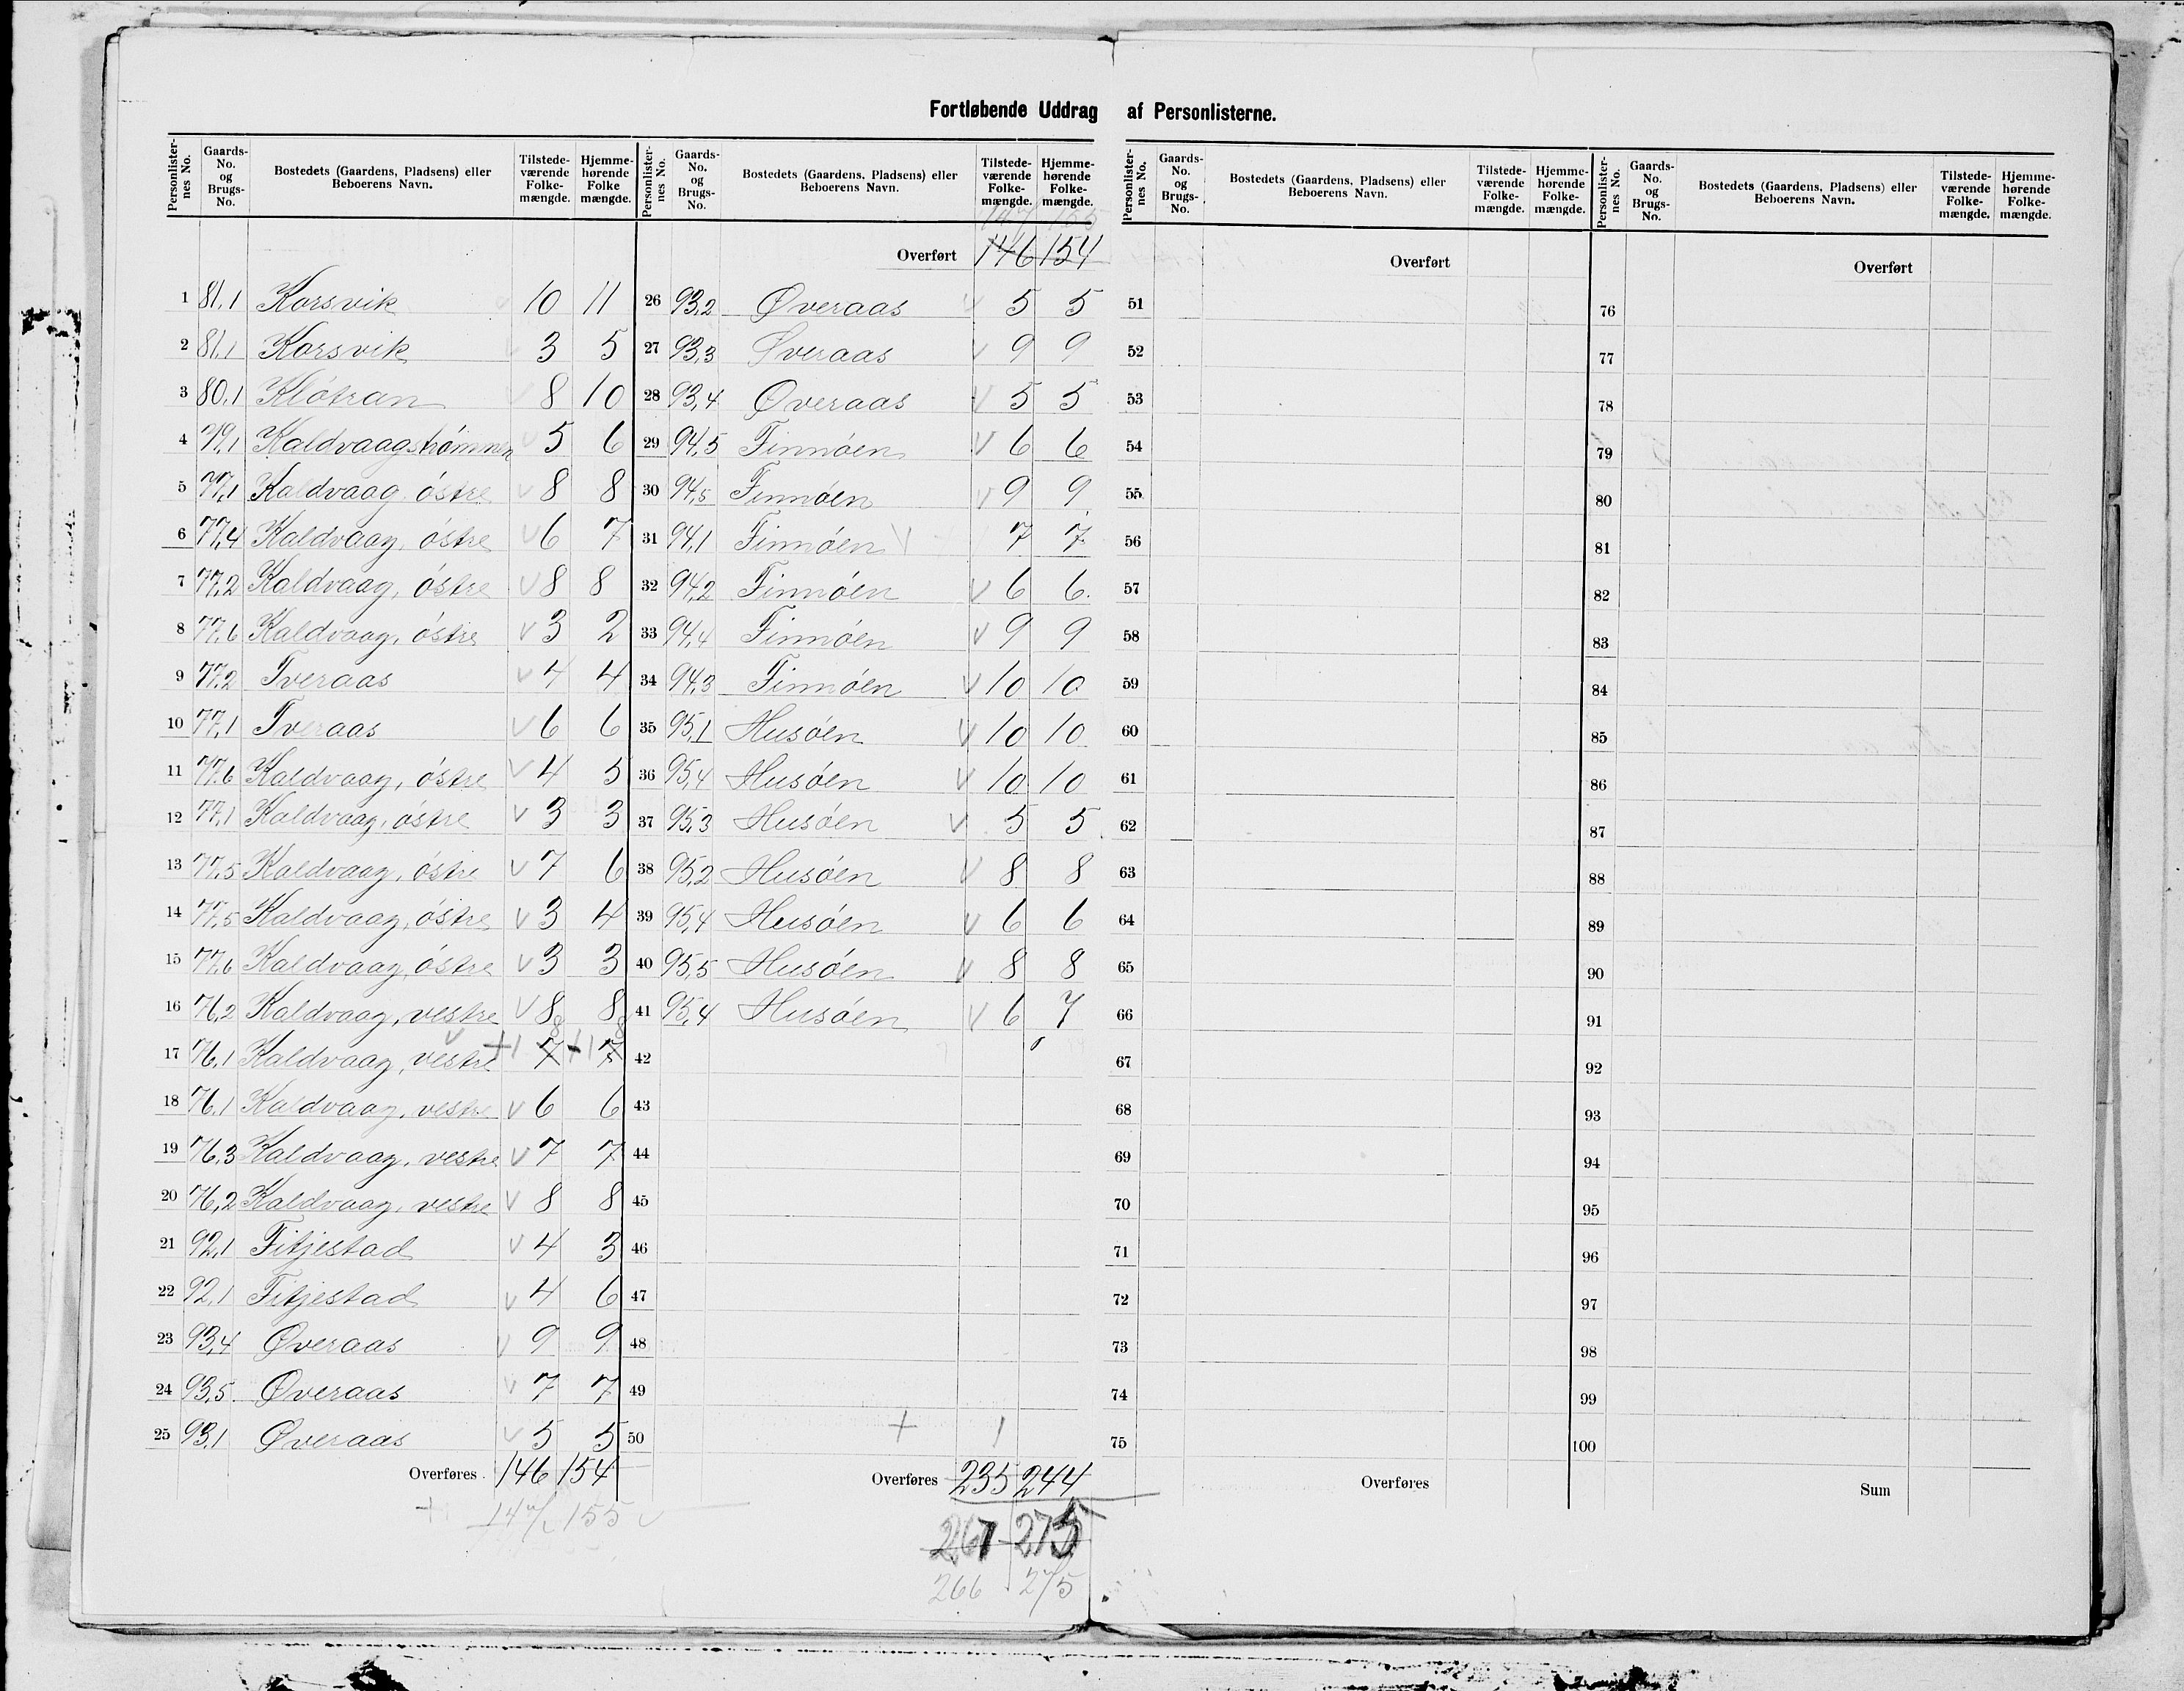 Fortløbende Uddrag af Personlisterne.
Personlisternes No. Gaards-No. og Brugs-No. Bostedets (Gaardens, Pladsens) eller Beboerens Navn. Tilstedeværende Folkemængde. Hjemmehørende Folkemængde.
1 81,1 Korsvik 10 11
2 81,1 Korsvik 3 5
3 80,1 Klótran 8 10
4 79,1 Kaldvaagshómmen 5 6
5 77,1 Kaldvaag óstre 8 8
6 77,4 Kaldvaag, óstre 6 7
7 77,2 Kaldvaag, óstre 8 8
8 77,6 Kaldvaag, óstre 3 2
9 77,2 Tveraas 4 4
10 77,1 Tveraas 6 6
11 77,6 Kaldvaag, óstre 4 5
12 77,1 Kaldvaag, óstre 3 3
13 77,5 Kaldvaag, óstre 7 6
14 77,5 Kaldvaag, óstre 3 4
15 77,6 Kaldvaag, óstre 3 3
16 76,2 Kaldvaag, vestre 8 8
17 76,1 Kaldvaag, vestre +1 7 8 +1 7 8
18 76,1 Kaldvaag, vestre 6 6
19 76,3 Kaldvaag, vestre 7 7
20 76,2 Kaldvaag, vestre 8 8
21 92,1 Fitjestad 4 3
22 92,1 Fitjestad 4 6
23 93,4 Øveraas 9 9
24 93,5 Øveraas 7 7
25 93,1 Øveraas 5 5
Overføres 146 154
147 155
Personlisternes No. Gaards-No. og Brugs-No. Bostedets (Gaardens, Pladsens) eller Beboerens Navn. Tilstedeværende Folkemængde. Hjemmehørende Folkemængde.
147 155
Overført 146 154
26 93,2 Øveraas 5 5
27 93,3 Øveraas 9 9
28 93,4 Øveraas 5 5
29 94,5 Finnóen 6 6
30 94,5 Finnóen 9 9
31 94,1 Finnóen 7 7
32 94,2 Finnóen 6 6
33 94,4 Finnóen 9 9
34 94,3 Finnóen 10 10
35 95,1 Husóen 10 10
36 95,4 Husóen 10 10
37 95,3 Husóen 5 5
38 95,2 Husóen 8 8
39 95,4 Husóen 6 6
40 95,5 Husóen 8 8
41 95,4 Husóen 6 7
42
43
44
45
46
47
48
49
50 + 1
Overføres 235 244
267 275
266 275
Personlisternes No. Gaards-No. og Brugs-No. Bostedets (Gaardens, Pladsens) eller Beboerens Navn. Tilstedeværende Folkemængde. Hjemmehørende Folkemængde.
Overført
51
52
53
54
55
56
57
58
59
60
61
62
63
64
65
66
67
68
69
70
71
72
73
74
75
Overføres
Personlisternes No. Gaards-No. og Brugs-No. Bostedets (Gaardens, Pladsens) eller Beboerens Navn. Tilstedeværende Folkemængde. Hjemmehørende Folkemængde.
Overført
76
77
78
79
80
81
82
83
84
85
86
87
88
89
90
91
92
93
94
95
96
97
98
99
100
Sum